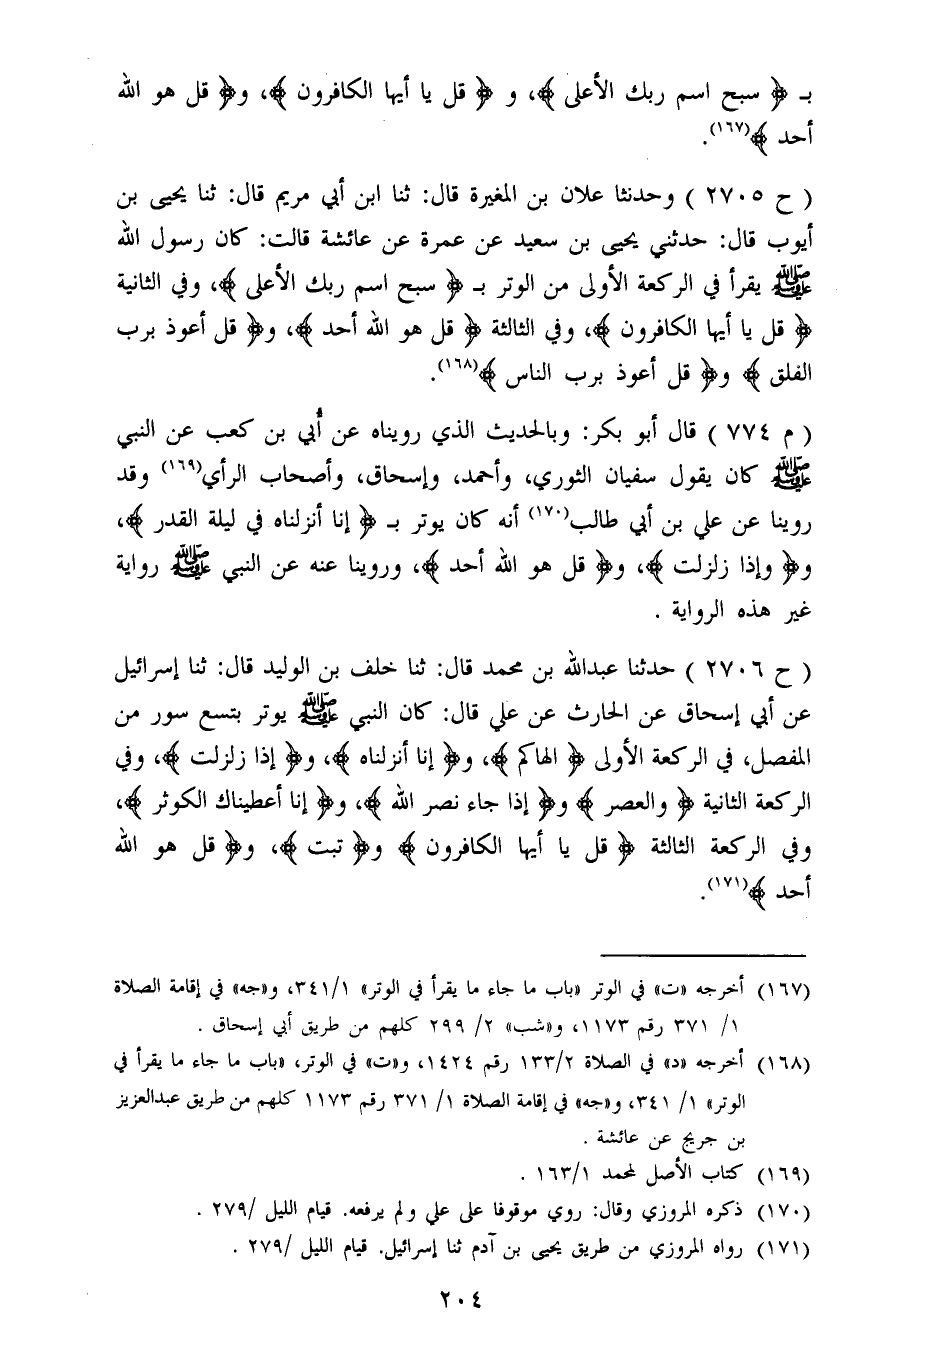 بـ ﴿ سبح اسم ربك الأعلى ﴾، و ﴿ قل يا أيها الكافرون ﴾، و﴿ قل هو الله
أحد ﴾(١٦٧).
( ح ٢٧٠٥ ) وحدثنا علان بن المغيرة قال: ثنا ابن أبي مريم قال: ثنا يحيى بن
أيوب قال: حدثني يحيى بن سعيد عن عمرة عن عائشة قالت: كان رسول الله
ﷺ يقرأ في الركعة الأولى من الوتر بـ ﴿ سبح اسم ربك الأعلى ﴾، وفي الثانية
﴿ قل يا أيها الكافرون ﴾، وفي الثالثة ﴿ قل هو الله أحد ﴾، و﴿ قل أعوذ برب
الفلق ﴾ و﴿ قل أعوذ برب الناس ﴾(١٦٨).
( م ٧٧٤ ) قال أبو بكر: وبالحديث الذي رويناه عن أُبي بن كعب عن النبي
ﷺ كان يقول سفيان الثوري، وأحمد، وإسحاق، وأصحاب الرأي(١٦٩) وقد
روينا عن علي بن أبي طالب(١٧٠) أنه كان يوتر بـ ﴿ إنا أنزلناه في ليلة القدر ﴾،
و﴿ وإذا زلزلت ﴾، و﴿ قل هو الله أحد ﴾، وروينا عنه عن النبي ﷺ رواية
غير هذه الرواية .
( ح ٢٧٠٦ ) حدثنا عبدالله بن محمد قال: ثنا خلف بن الوليد قال: ثنا إسرائيل
عن أبي إسحاق عن الحارث عن علي قال: كان النبي ﷺ يوتر بتسع سور من
المفصل، في الركعة الأولى ﴿ الهاكم ﴾، و﴿ إنا أنزلناه ﴾، و﴿ إذا زلزلت ﴾، وفي
الركعة الثانية ﴿ والعصر ﴾ و﴿ إذا جاء نصر الله ﴾، و﴿ إنا أعطيناك الكوثر ﴾،
وفي الركعة الثالثة ﴿ قل يا أيها الكافرون ﴾ و﴿ تبت ﴾، و﴿ قل هو الله
أحد ﴾(١٧١).
(١٦٧) أخرجه «ت» في الوتر «باب ما جاء ما يقرأ في الوتر» ٣٤١/١، و«جه» في إقامة الصلاة
١/ ٣٧١ رقم ١١٧٣، و«شب» ٢/ ٢٩٩ كلهم من طريق أبي إسحاق .
(١٦٨) أخرجه «د» في الصلاة ١٣٣/٢ رقم ١٤٢٤، و«ت» في الوتر، «باب ما جاء ما يقرأ في
الوتر» ١/ ٣٤١، و«جه» في إقامة الصلاة ١/ ٣٧١ رقم ١١٧٣ كلهم من طريق عبدالعزيز
بن جريج عن عائشة .
(١٦٩) كتاب الأصل لمحمد ١٦٣/١ .
(١٧٠) ذكره المروزي وقال: روي موقوفا على علي ولم يرفعه. قيام الليل /٢٧٩ .
(١٧١) رواه المروزي من طريق يحيى بن آدم ثنا إسرائيل. قيام الليل /٢٧٩ .
٢٠٤